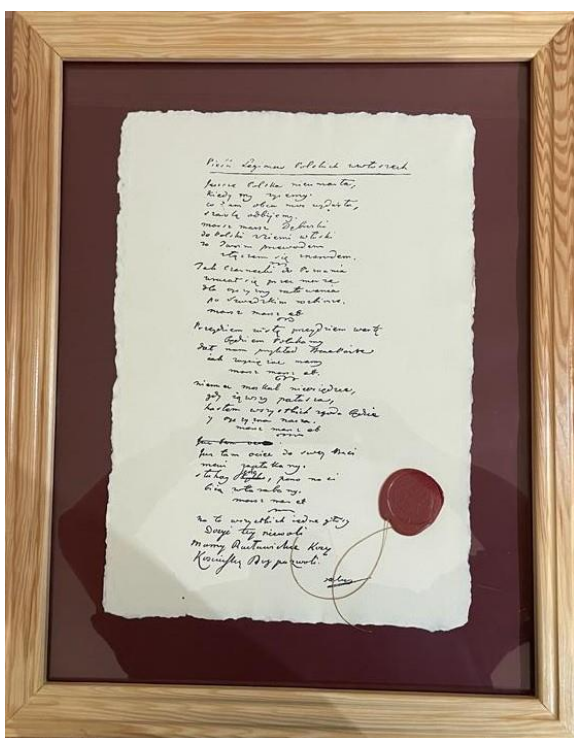 Pieśń Legionów Polskich we włoszech
Jeszcze Polska nieumarła,
kiedy my żyjemy.
co nam obca moc wydarła,
szablą odbijemy.
marsz marsz Dąbrowski
do Polski z ziemi włoski
za Twoim przewodem
złączem się z narodem.
Jak Czarnecki do Poznania
wracał się przez morze
dla ojczyzny ratowania
po Szwedzkim rozbiorze.
marsz marsz etc
Przejdziem wisłę przejdziem wartę
będziem Polakamy
dał nam przykład Bonaparte
jak zwyciężać mamy
marsz marsz etc.
niemiec moskal nieosiędzie,
gdy jąwszy pałasza,
hasłem wszystkich zgoda będzie
y ojczyzna nasza.
marsz marsz etc
Już tam ociec do swey Basi
mówi zapłakany.
słuchay jeno, pono nasi
biją w tarabany.
marsz marsz etc
na to wszystkich jedne głosy
Dosyć tey niewoli
mamy Racławickie Kosy
Kościuszkę Bóg pozwoli.